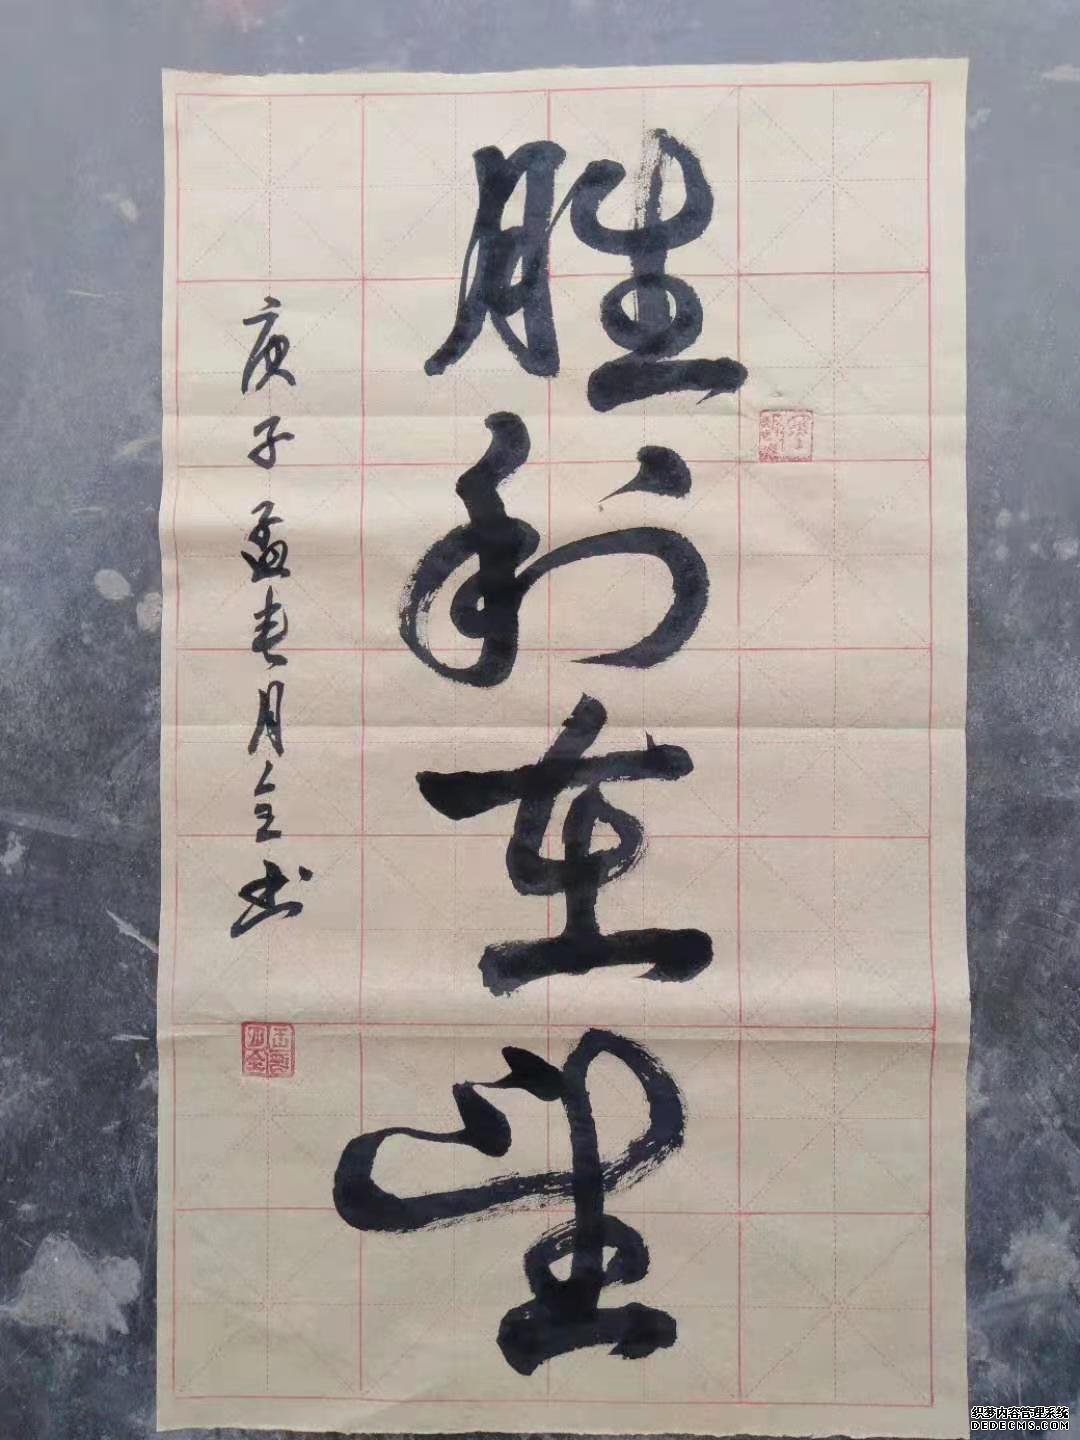 胜利在望
庚子孟春月全书
织梦内容管理系统
DEDECMS.COM